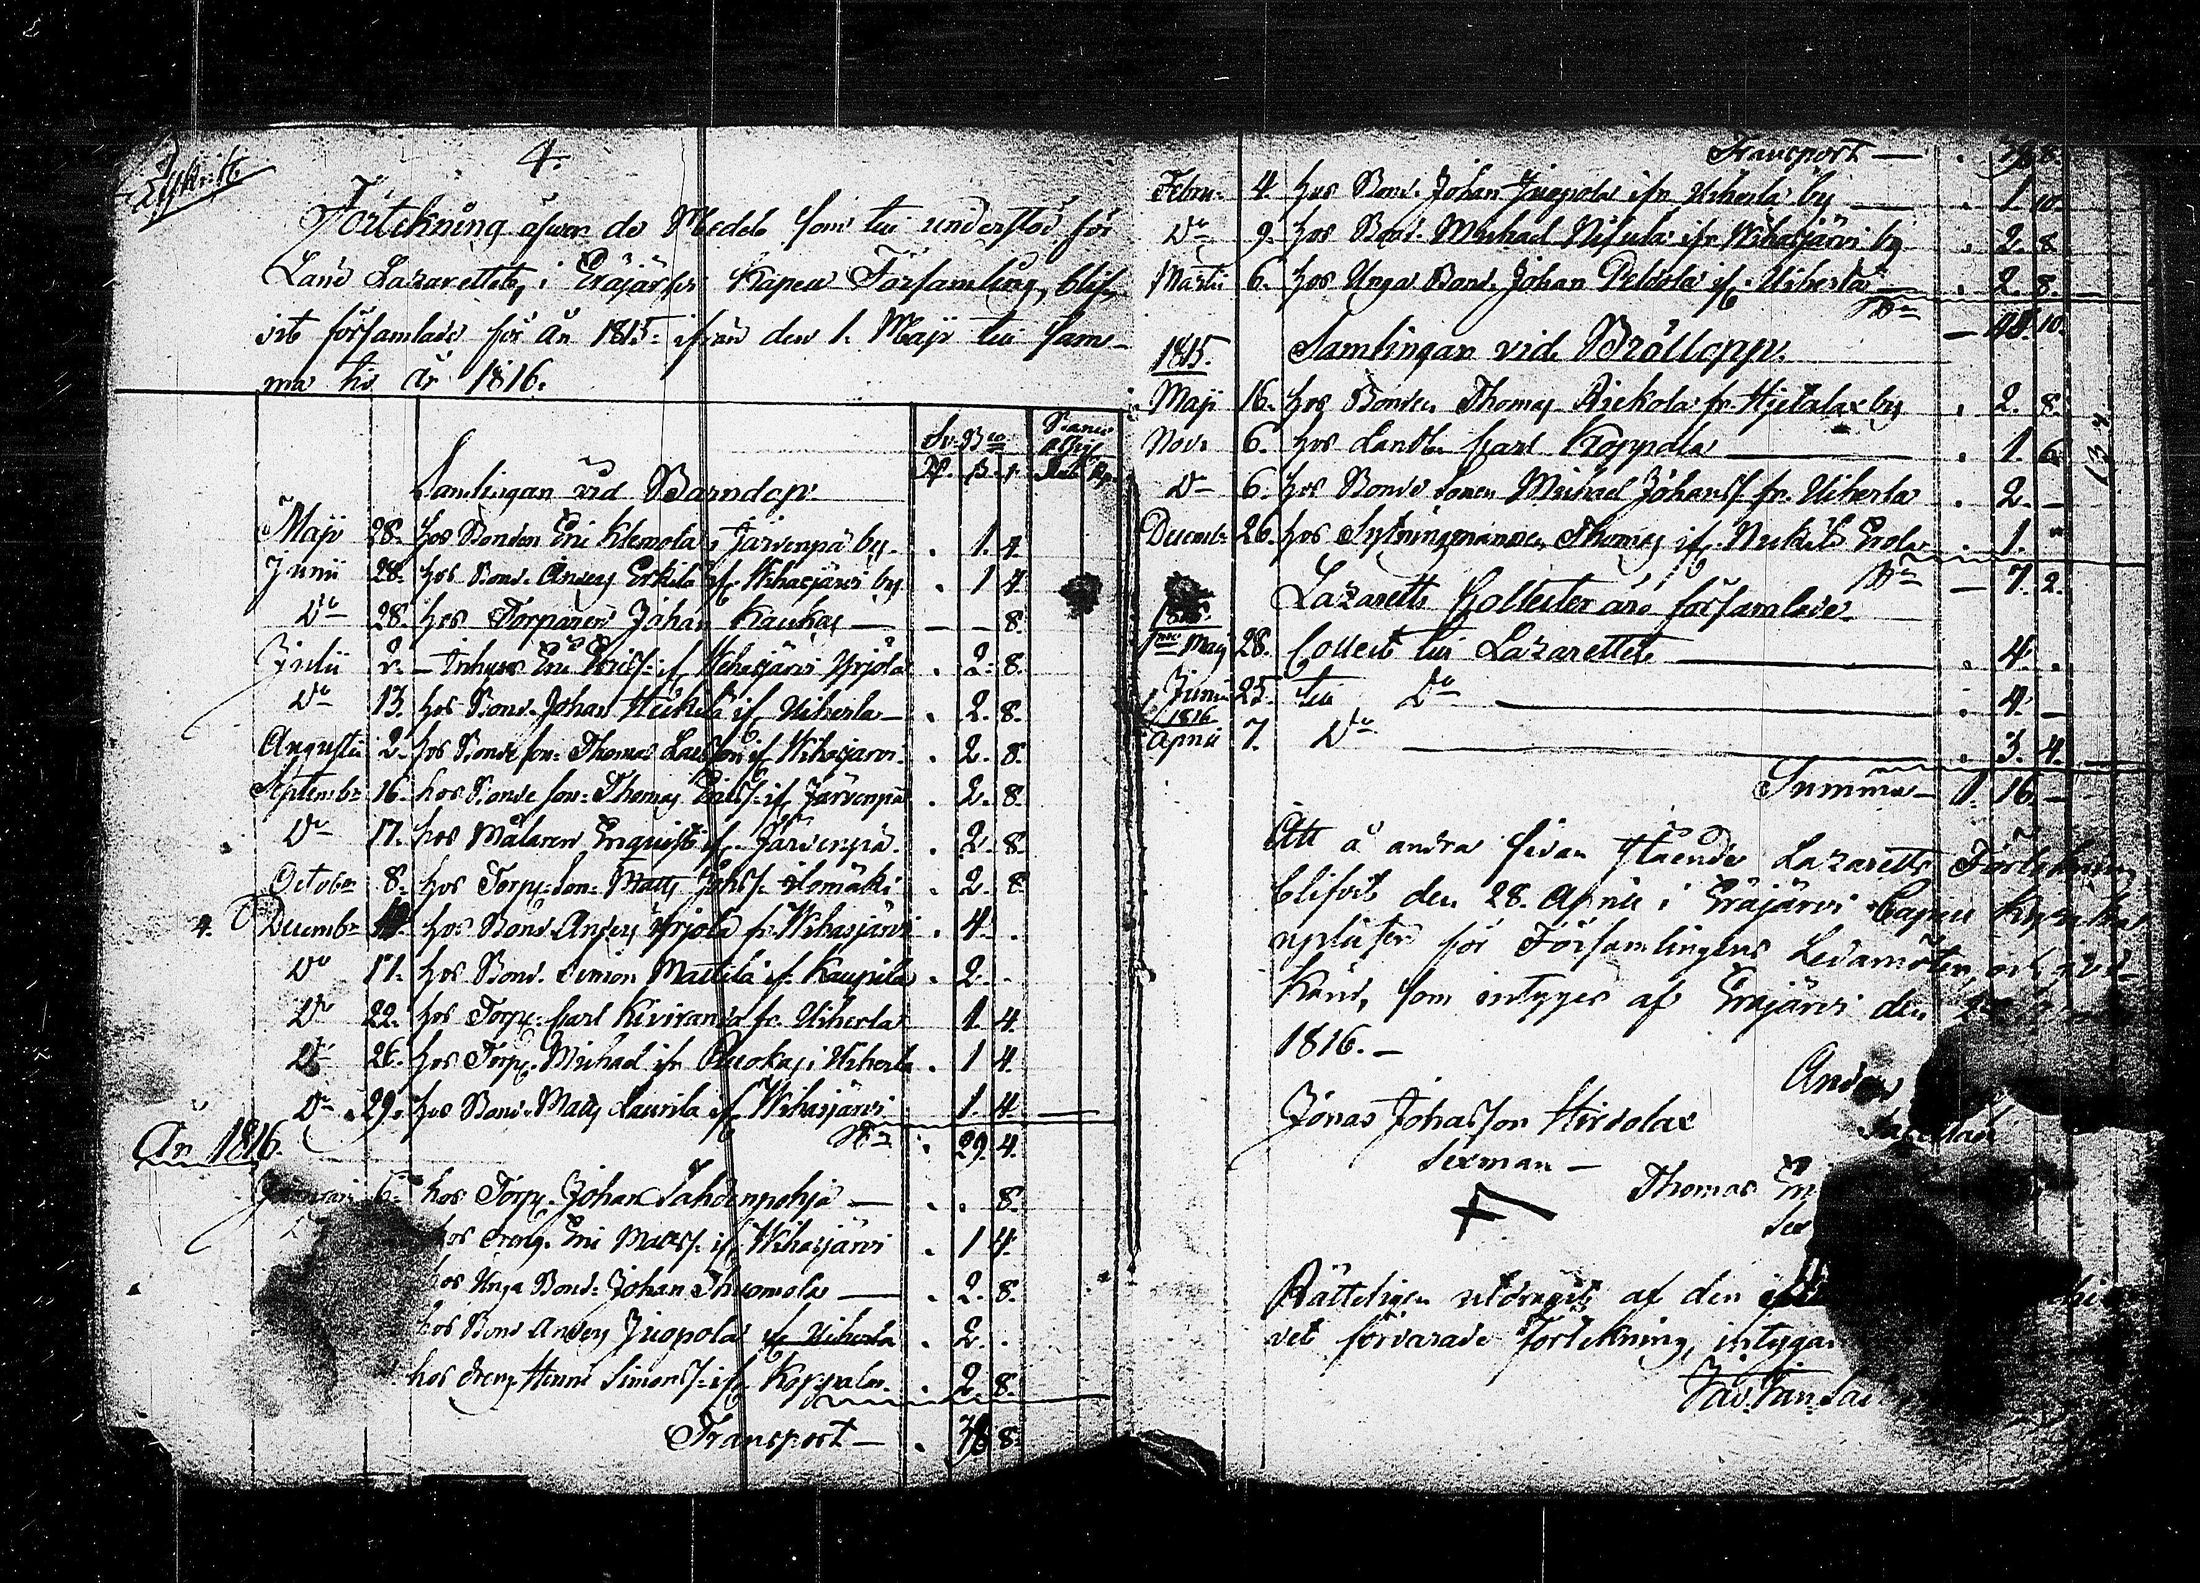 4.
Förtekning öfwer de Medel som till understöd för
Land Lazarettet, i Eräjärfvi Kapell Församling, blif-
vit församlade för år 1815. ifrån den 1. Maji till sam-
ma tid år 1816.
Sv. Bco
Samlingar vid Barndop.
Maji 28. hos Bonden Eric Klemola i Järvenpä by . 1. 4.
Junii 28. hos Bond. Anders Erkilä if. Wihasjärvi by . 1. 4.
Do 28. hos Torparen Johan Kaukas — — — 8.
Julii 2. — Inhyses Eric Ericss. if. Wehasjärvi Yrjölä . 2. 8.
Do 13. hos Bond. Johan Heikilä if. Uiherla — . 2. 8.
Augusti 2. hos Bonde son. Thomas if. Wihasjärvi . 2. 8.
Septembr 16. hos Bonde son. Thomas Ericss. if. Järvenpä . 2. 8.
Do 17. hos Målaren Enqvist if. Järvenpä . 2. 8.
October 8. hos Torp. son. Matts Johss. Ilomäki . 2. 8.
4. Decembr hos Bond. Anders Yrjölä fr. Wihasjärvi . 4. .
Do 17. hos Bond. Simon Mattila if. Kaupila . 2. .
Do 22. hos Torp. Carl Kiviranda fr. Uiherla 1. 4.
Do 26. hos Torp. Michael ifr. Ruokas i Uiherla . 1. 4.
Do 29. hos Bond. Matts Laurila if. Wihasjärvi 1. 4. —
Sm . 29. 4.
År 1816.
Januari 6. hos Torp. Johan Lahdenpohja — . . 8.
hos dreng. Eric Matss. if. Wihasjärvi . 1. 4.
hos Unga Bond. Johan Thuomola — . 2. 8.
hos Bond Anders Juopola if. Uiherla . 2. .
hos dreng Henric Simonss. if. Koppala . 2. 8.
Transport — . 38 8.
Transport — . 38 8.
Febru. 4. hos Bond. Johan Juopola ifr. Uiherla by — . 1. 10.
Do 9. hos Bond. Michael Nifula ifr. Wihasjärvi by . 2. 8.
Martii 6. hos Unga Bond. Johan Peldola if. Uiherla — . 2. 8.
Sm — 10.
1815. Samlingar vid Bröllopp.
Maji 16. hos Bonden Thomas Riekola fr. Hietala by . 2. 8.
Nov. 6. hos Landb. Carl Koppala — . 1. 6.
Do 6. hos Bonde sonen Michael Johanss. fr. Uiherla . 2. —
Decembr 26. hos Sytningmannen Thomas if. Erola . 1.
Sm — 7. 2.
Lazaretts Collecter äro församlade.
Maij 28. Collect till Lazarettet — . 4. .
Junii 25. till Do — . 4. —
1816
Aprill 7. Do — . 3. 4.
Summa — 1. 16. —
134
Att å andra sidan stående Lazaretts Förtekning
blifvit den 28. Aprill i Eräjärvi Capell Kyrcka
uplüsen för Församlingens Ledamöter, och
känd, som intygas af Eräjärvi den
1816. —
Anders
Jonas Johansson Hirdola
Sexman —
Thomas
Sex
Rätteligen utdragit af den
vet förvarade Förtekning, intygar